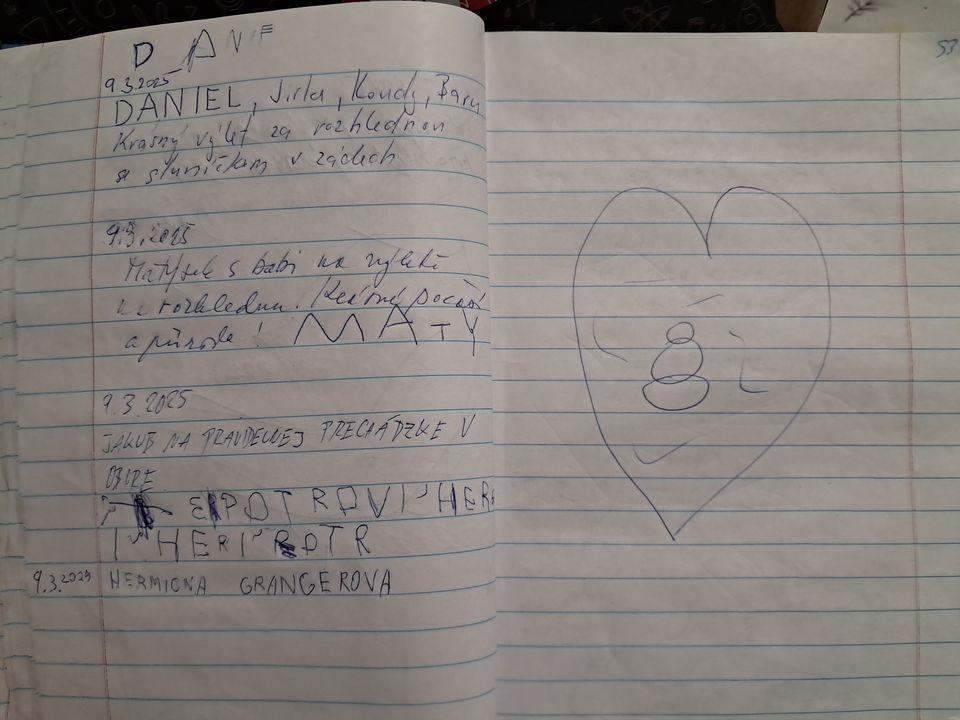 D A N I E
53
9.3.2025
DANIEL, Jirka, Koudy, Baru
Krásný výlet za rozhlednou
se sluníčkem v zádech
9.3.2025
Matýsek s babi na výletě
na rozhlednu. Krásné počasí
a příroda! MATY
9.3.2025
JAKUB NA PRAVIDELNEJ PRECHÁDZKE V
OBORE
HERI
9.3.2025 HERMIONA GRANGEROVA